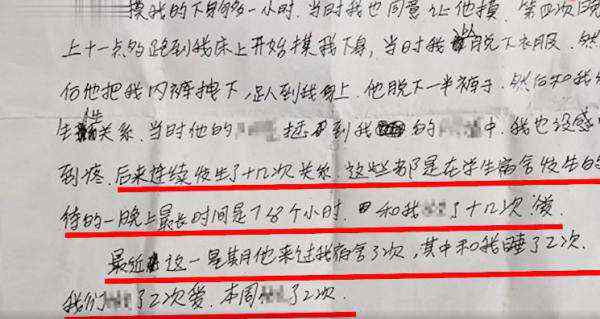 摸我的下身多一小时，当时我也同意让他摸，第四次晚
上十一点多跑到我床上开始摸我下身，当时我脱下衣服，然
后他把我内裤拽下，趴到我身上，他脱下一半裤子，然后和我
生性关系，当时他的 到我 的 中，我也没感
到疼，后来连续发生了十几次关系，这些都是在学生宿舍发生的
待的一晚上最长时间是7 8个小时，和我 了十几次爱
最近这一星期他来过我宿舍了 次，其中和我睡了2次
我们 了2次爱，本周 了2次．